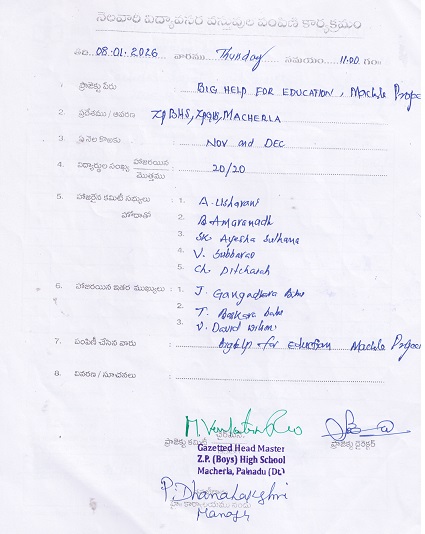 నెలవారి విద్యావసర వస్తువుల పంపిణీ కార్యక్రమం
తేది 08.01.2026 వారము Thursday సమయం 11:00 గం॥
1. ప్రాజెక్టు పేరు : BIG HELP FOR EDUCATION, Machile Projec
2. ప్రదేశము / ఆవరణ : ZPBHS, ZPGHS, MACHERLA
3. ఏ నెల కొరకు : NOV and DEC
4. విద్యార్థుల సంఖ్య హాజరయిన / మొత్తము : 20/20
5. హాజరైన కమిటీ సభ్యులు : 1. A. Usharani
హోదాతో 2. B. Amaranadh
3. SK. Ayesha Sulthana
4. V. Subbarao
5. Ch. Pitchaiah
6. హాజరయిన ఇతర ముఖ్యులు : 1. J. Gangadhara Babu
2. T. Baskara babu
3. V. David
7. పంపిణీ చేసిన వారు : Bighelp for education Machile Projec
8. వివరణ / సూచనలు :
M. Venkateswara Rao
ప్రాజెక్టు కమిటీ ఛైర్మన్ ప్రాజెక్టు డైరెక్టర్
Gazetted Head Master
Z.P. (Boys) High School
Macherla, Palnadu (Dt.)
P. Dhanalakshmi
Manager